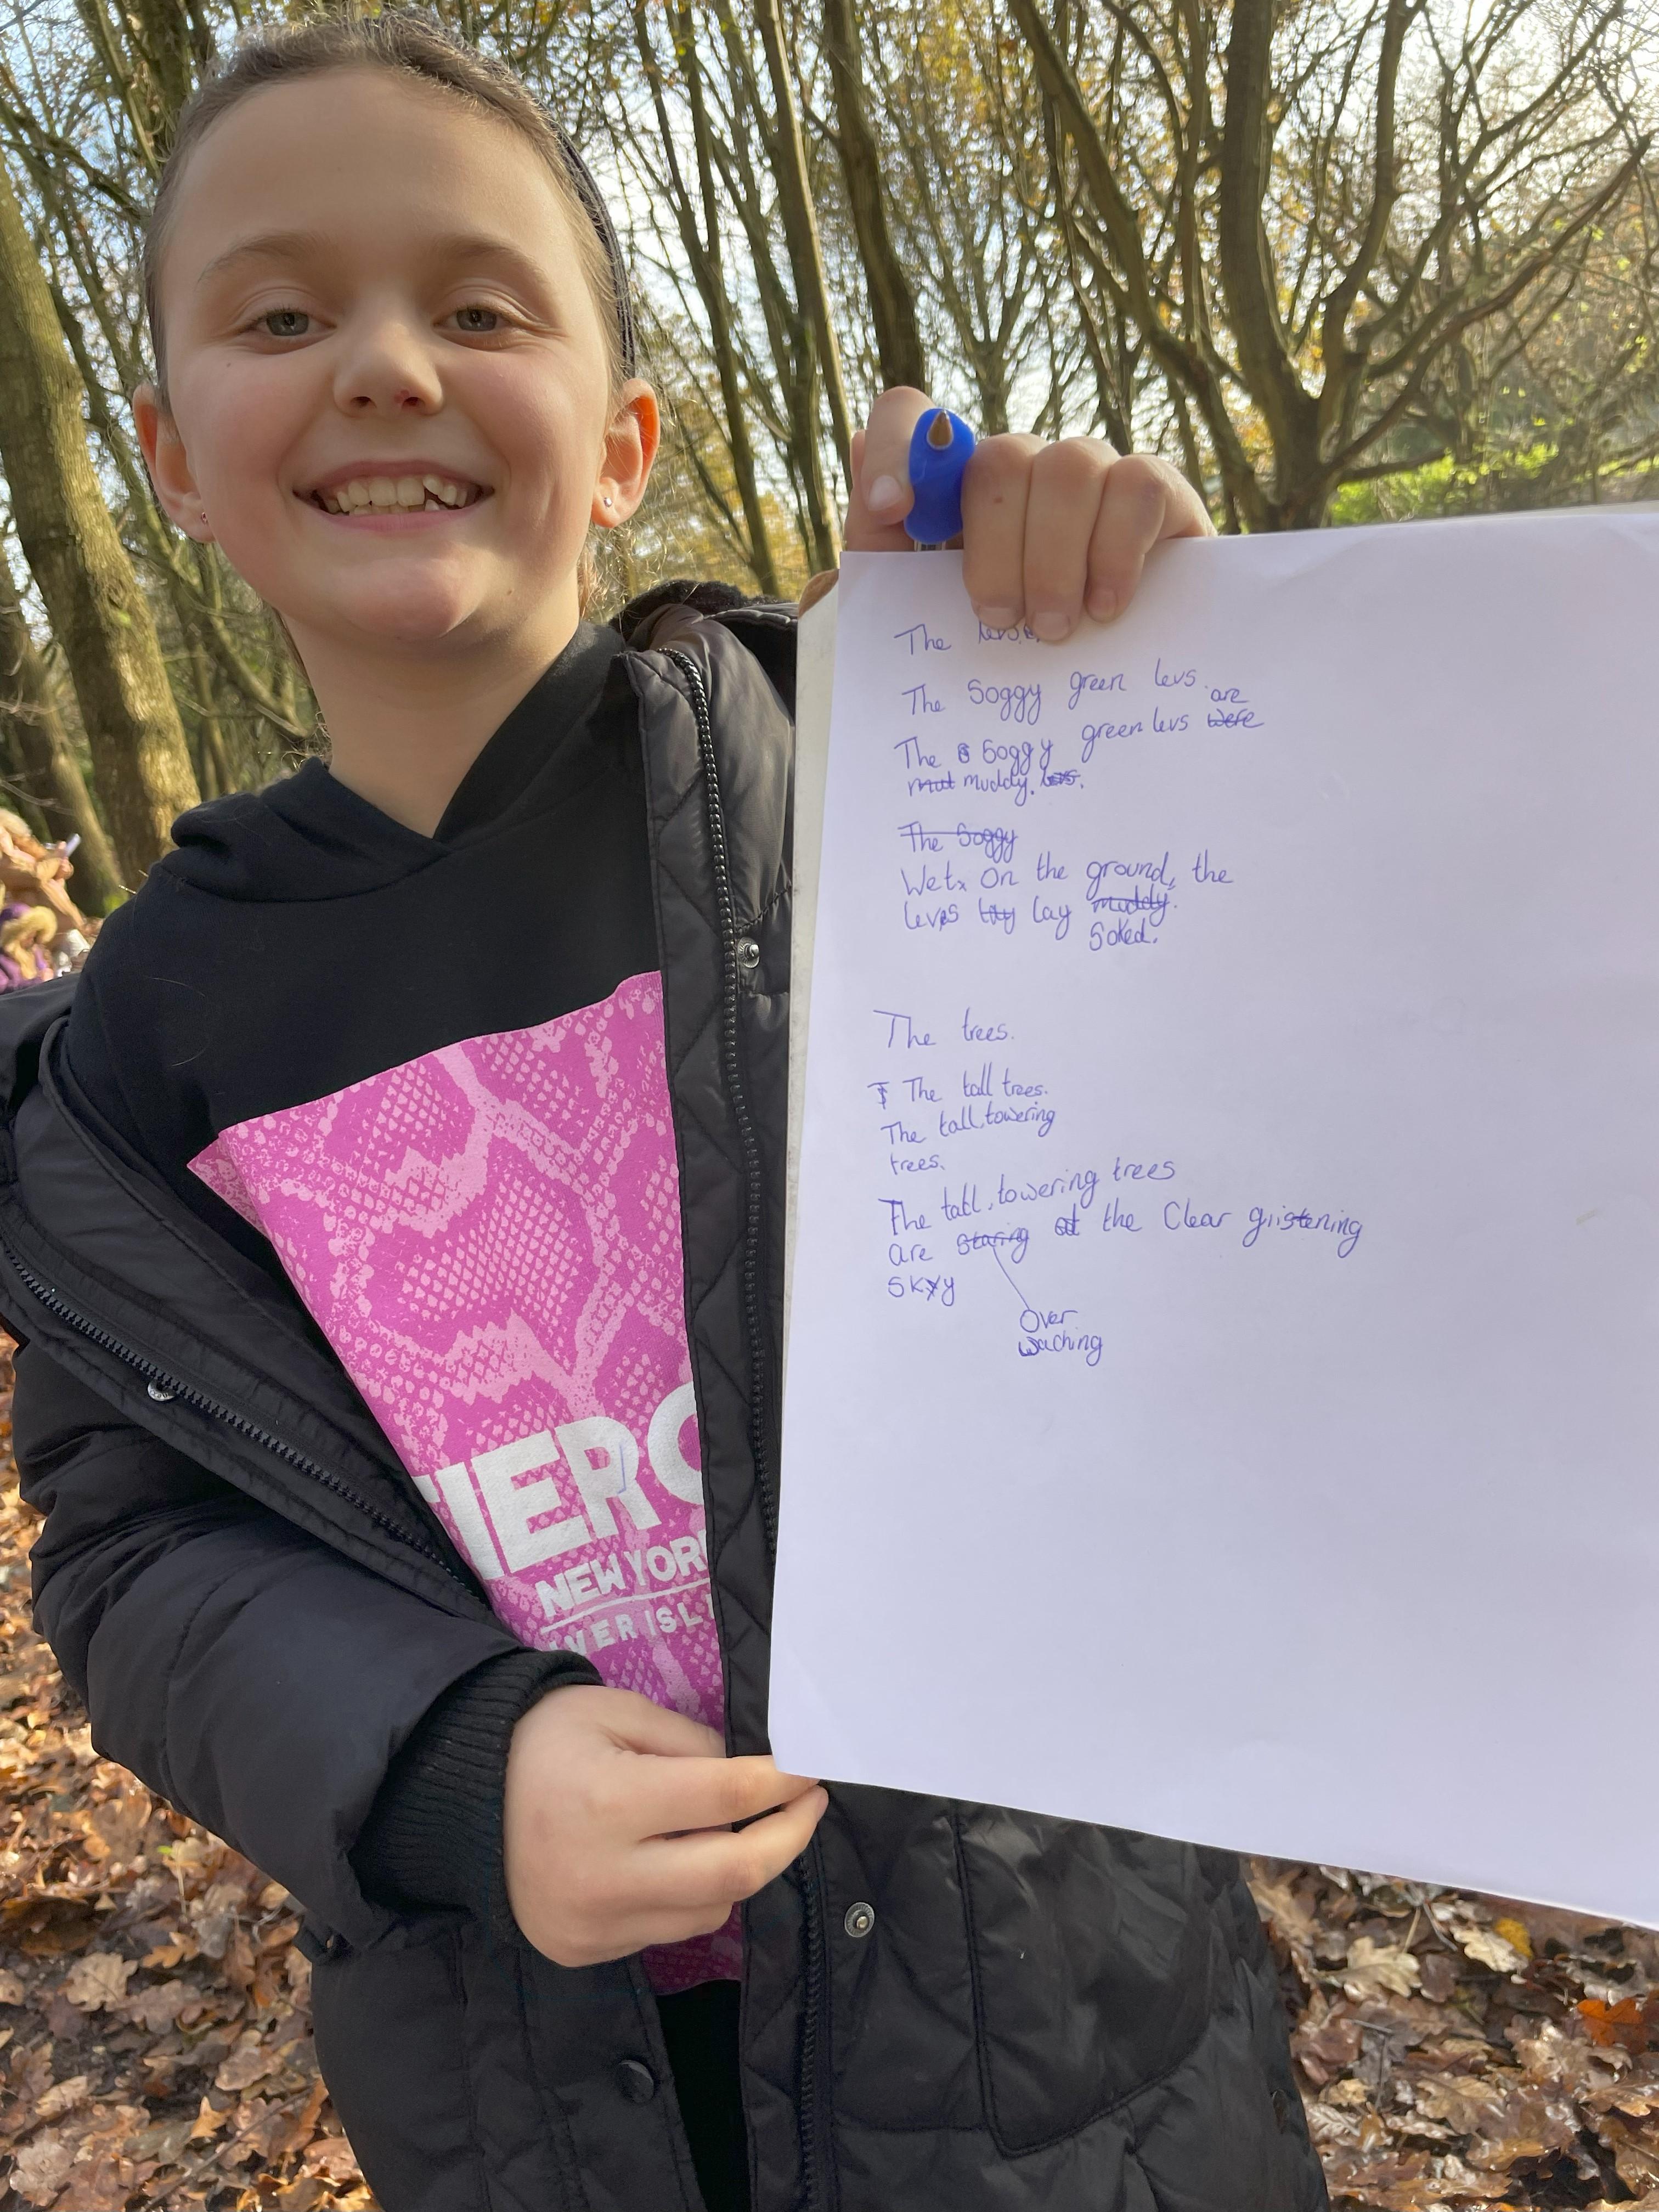 The
The Soggy green levs.
are
The Soggy green levs were
mud muddy. levs.
The Soggy
Wet. On the ground, the
levs lay lay muddy.
Soked.
The trees.
The tall trees.
The tall, towering
trees.
The tall, towering trees
are staring at the Clear glistening
sky
Over
waching
NEW YOR
VER ISL